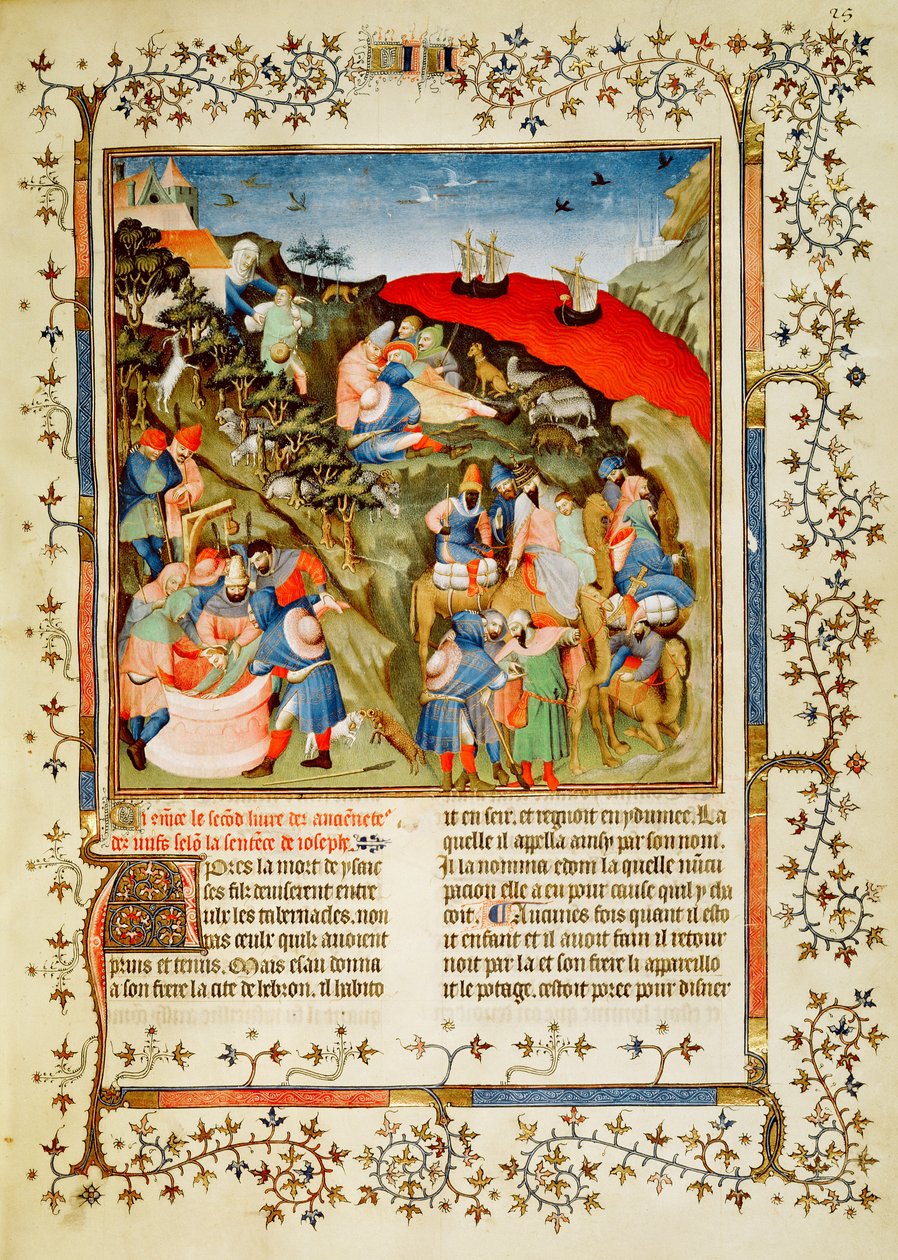 25
II
Ci cōmēce le secōd livre des anciēnetes
des iuifs selō la sentēce de ioseph.
Apres la mort de ysaac
ses filz deviserent entre
eulx les tabernacles. non
pas ceulx quilz avoient
prins et tenus. Mais esau donna
a son frere la cite de hebron. il habito
it en seir. et regnoit en ydumee. La
quelle il appella ainsy par son nom.
Il la nomma edom la quelle nūcu
pacion elle a eu pour cause quil y cha
coit. Aucunes fois quant il esto
it enfant et il avoit fain il retour
noit par la et son frere li appareillo
it le potage. cestoit poree pour disner